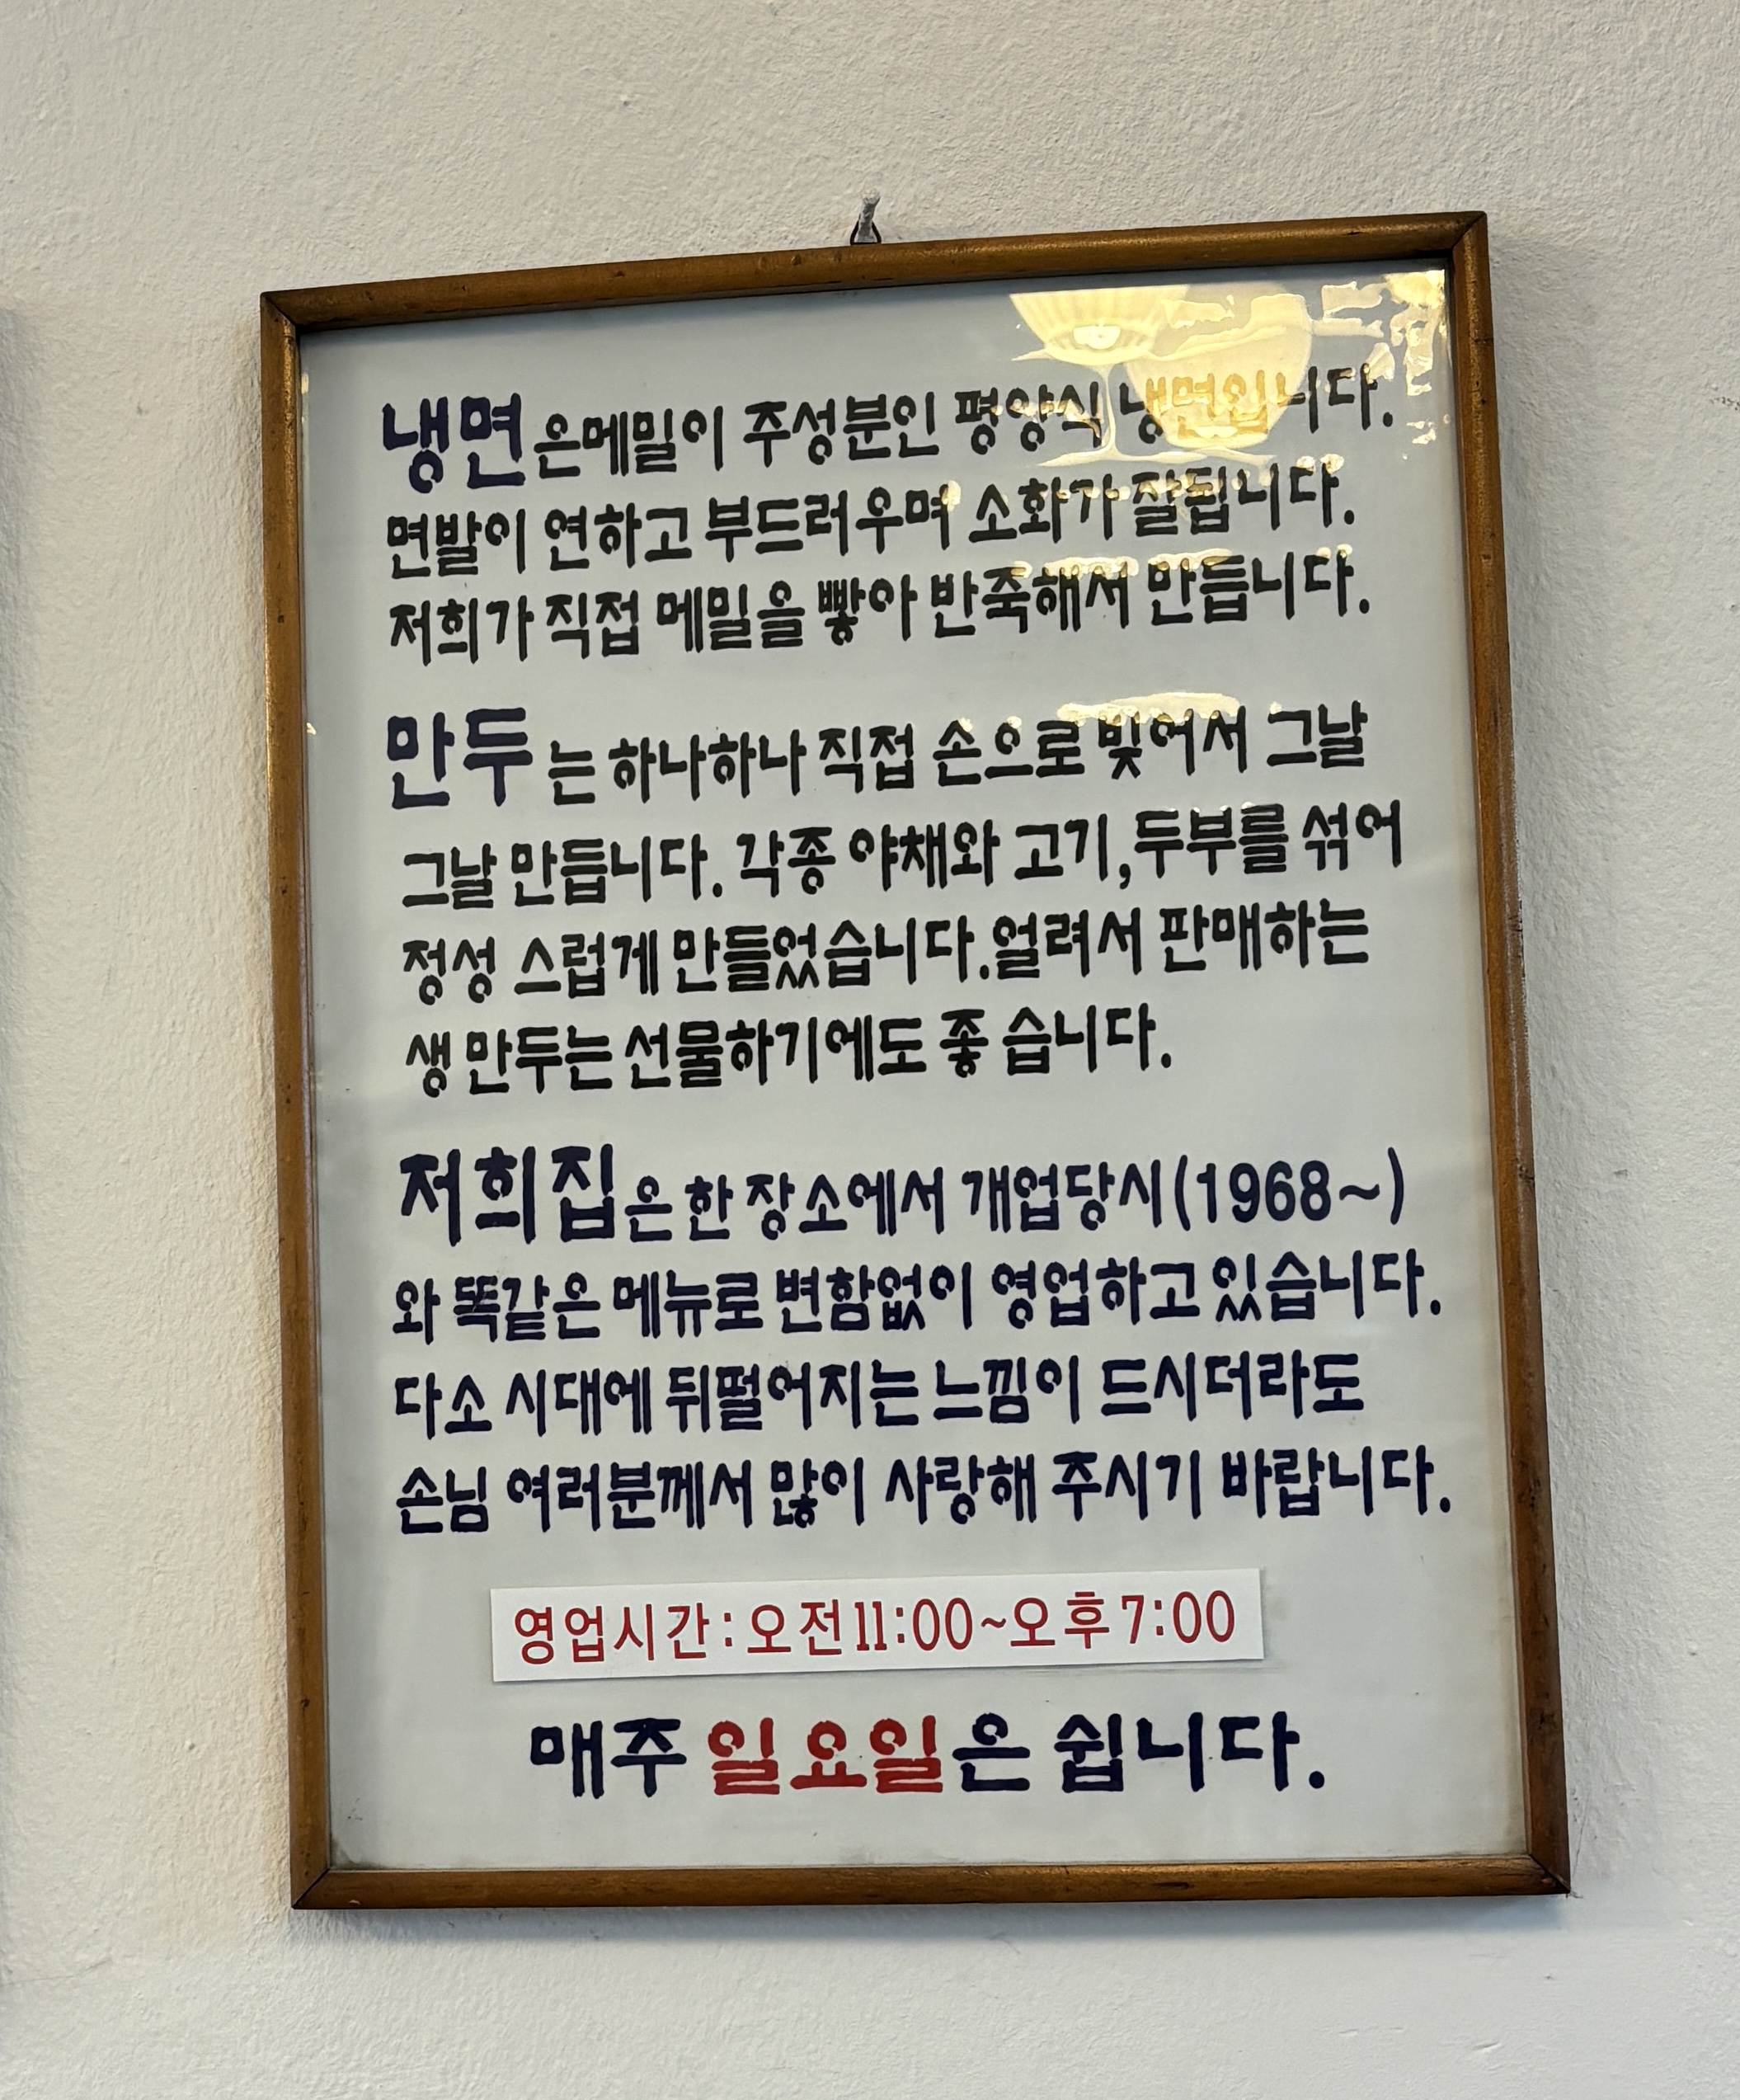 냉면은메밀이 주성분인 평양식 냉면입니다.
면발이 연하고 부드러우며 소화가 잘됩니다.
저희가 직접 메밀을 빻아 반죽해서 만듭니다.
만두는 하나하나 직접 손으로 빚어서 그날
그날 만듭니다. 각종 야채와 고기,두부를 섞어
정성 스럽게 만들었습니다.얼려서 판매하는
생만두는 선물하기에도 좋 습니다.
저희집은 한 장소에서 개업당시(1968~)
와 똑같은 메뉴로 변함없이 영업하고 있습니다.
다소 시대에 뒤떨어지는 느낌이 드시더라도
손님 여러분께서 많이 사랑해 주시기 바랍니다.
영업시간:오전11:00~오후7:00
매주 일요일은 쉽니다.